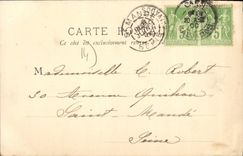 CARTE
Ce côté est exclusivement
14
Mademoiselle C. Robert
50 Avenue Quihou
Saint-Mandé
Seine